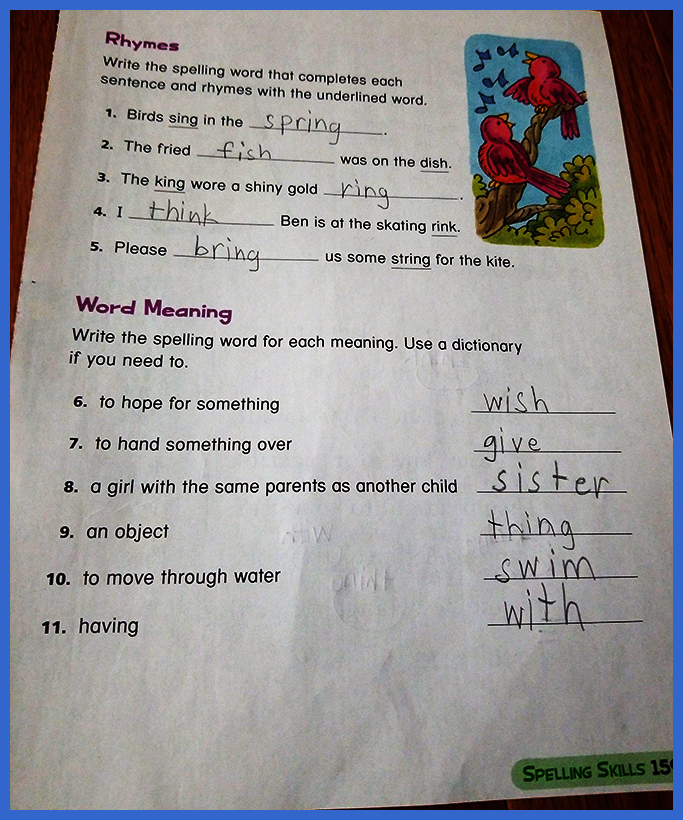 Rhymes
Write the spelling word that completes each
sentence and rhymes with the underlined word.
1. Birds sing in the spring.
2. The fried fish was on the dish.
3. The king wore a shiny gold ring.
4. I think Ben is at the skating rink.
5. Please bring us some string for the kite.
Word Meaning
Write the spelling word for each meaning. Use a dictionary
if you need to.
6. to hope for something wish
7. to hand something over give
8. a girl with the same parents as another child sister
9. an object thing
10. to move through water swim
11. having with
SPELLING SKILLS